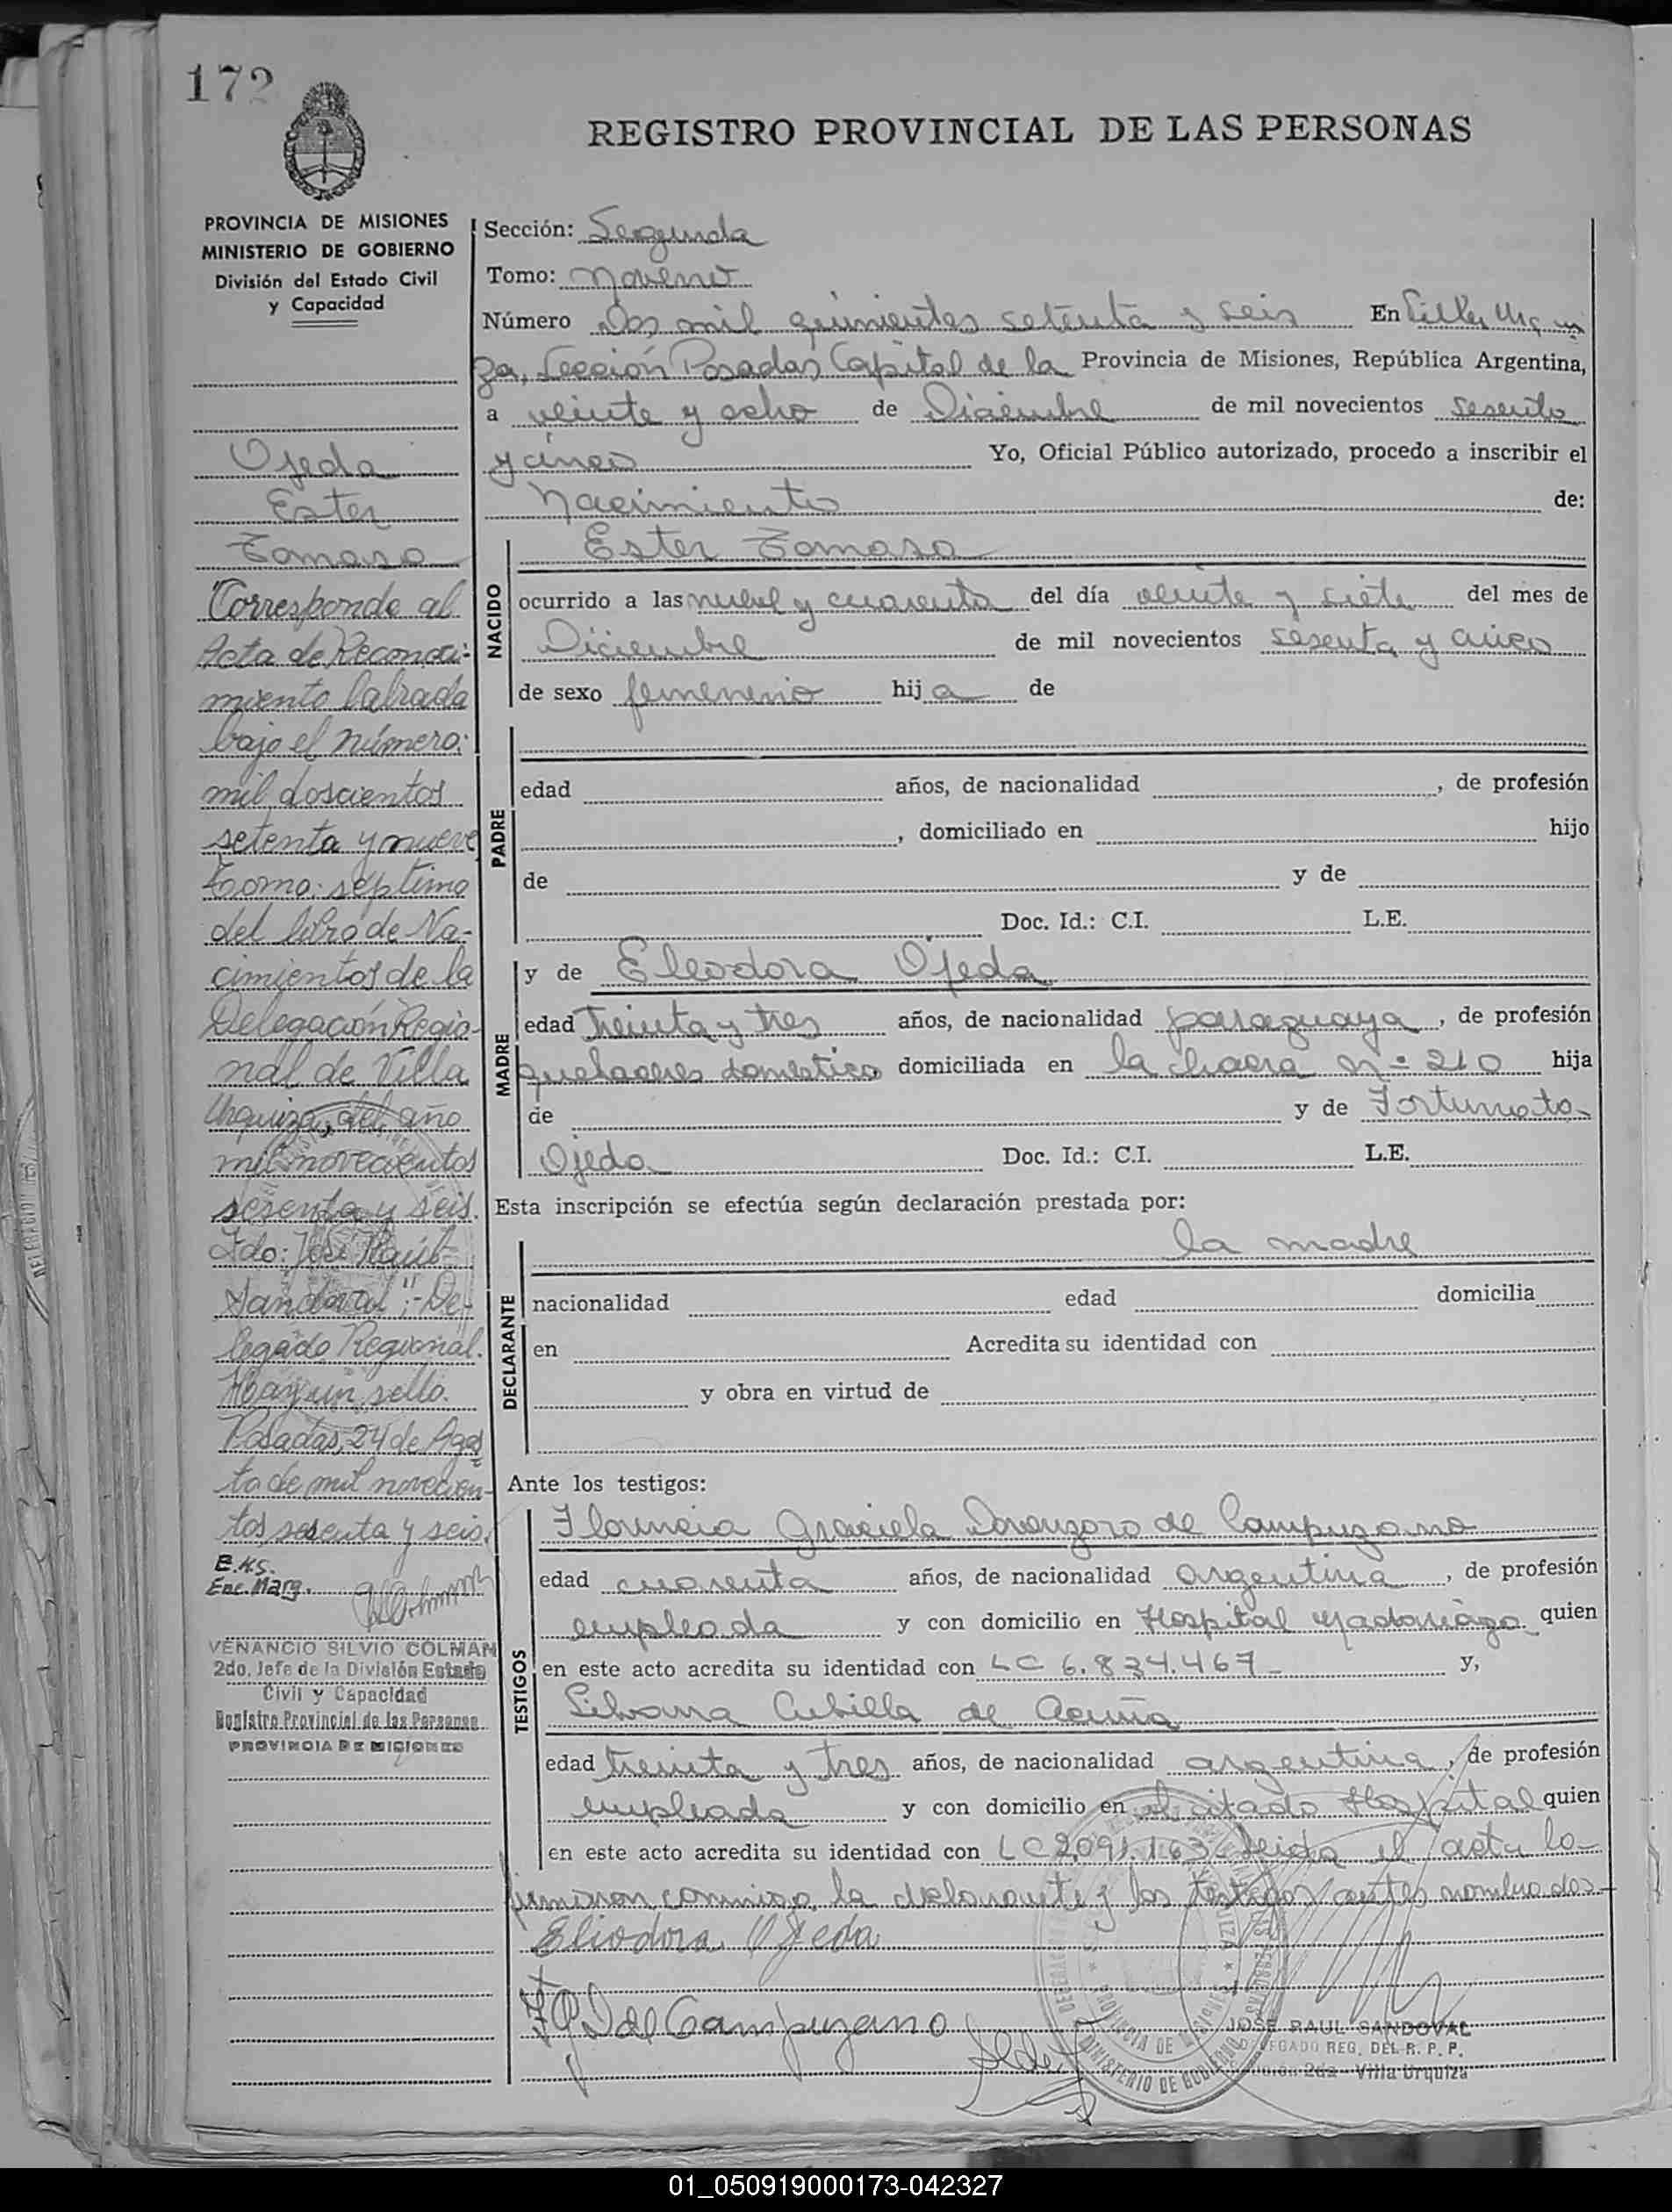 172
REGISTRO PROVINCIAL DE LAS PERSONAS
PROVINCIA DE MISIONES
MINISTERIO DE GOBIERNO
División del Estado Civil
y Capacidad
Ojeda
Ester
Tomasa
Corresponde al
Acta de Reconoci-
miento labrada
bajo el número:
mil doscientos
setenta y nueve
Tomo: séptimo
del libro de Na-
cimientos de la
Delegación Regio-
nal de Villa
Urquiza, del año
mil novecientos
sesenta y seis.
Fdo: José Raúl
Sandoval :- De-
legado Regional.
Hay un sello.
Posadas, 24 de Agos
to de mil novecien-
tos sesenta y seis.
E.K.S.
Enc. Marg.
VENANCIO SILVIO COLMAN
2do. Jefe de la División Estado
Civil y Capacidad
Registro Provincial de las Personas
PROVINCIA DE MISIONES
Sección: Segunda
Tomo: Noveno
Número Dos mil quinientos setenta y seis En Villa Urqui
za, Sección Posadas Capital de la Provincia de Misiones, República Argentina,
a veinte y ocho de Diciembre de mil novecientos sesenta
y cinco Yo, Oficial Público autorizado, procedo a inscribir el
Nacimiento de:
NACIDO
Ester Tomasa
ocurrido a las nueve y cuarenta del día veinte y siete del mes de
Diciembre de mil novecientos sesenta y cinco
de sexo femenino hija de
PADRE
edad años, de nacionalidad , de profesión
, domiciliado en hijo
de y de
Doc. Id.: C.I. L.E.
MADRE
y de Eleodora Ojeda
edad treinta y tres años, de nacionalidad paraguaya, de profesión
quehaceres domestico domiciliada en la chacra nº 210 hija
de y de Fortunata
Ojeda Doc. Id.: C.I. L.E.
Esta inscripción se efectúa según declaración prestada por:
DECLARANTE
la madre
nacionalidad edad domicilia
en Acredita su identidad con
y obra en virtud de
Ante los testigos:
TESTIGOS
Graciela de Campuzano
edad cuarenta años, de nacionalidad argentina, de profesión
empleada y con domicilio en Hospital Madariaga quien
en este acto acredita su identidad con LC 6.834.467 y,
Silvana Cubilla de Acuña
edad treinta y tres años, de nacionalidad argentina, de profesión
empleada y con domicilio en el citado Hospital quien
en este acto acredita su identidad con LC 2.091.163 Leida el acta la
firmaron conmigo, la declarante y los testigos antes nombrados
Eliodora Ojeda
F G D de Campuzano
JOSE RAUL SANDOVAL
DELEGADO REG. DEL R. P. P.
Sección 2da - Villa Urquiza
PROVINCIA DE MISIONES
MINISTERIO DE GOBIERNO
01_050919000173-042327